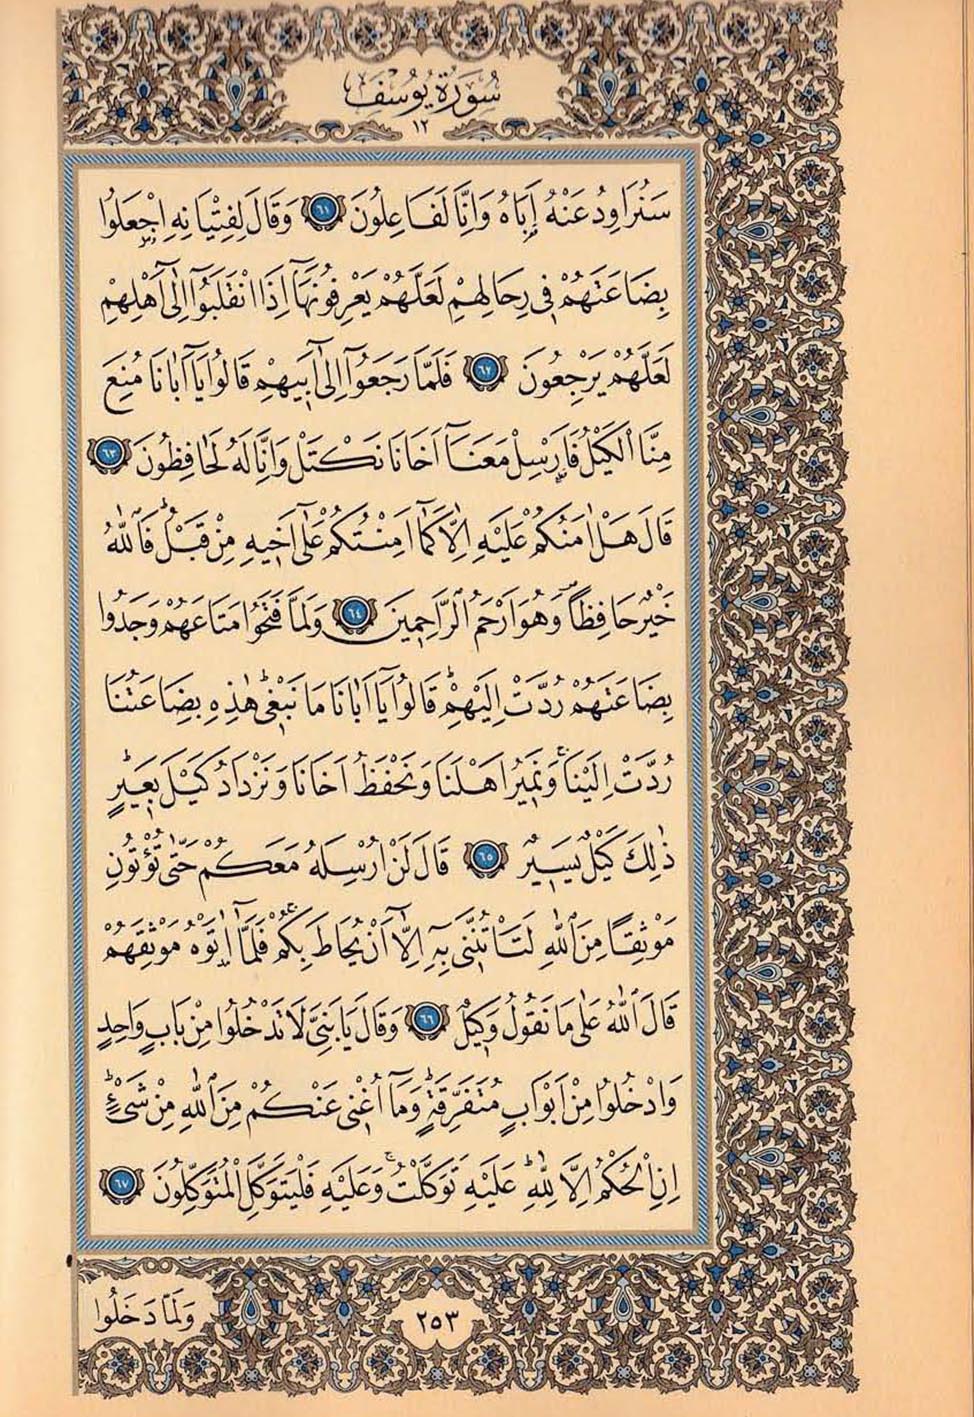 سُورَةُ يُوسُفَ
١٢
سَنُرَاوِدُ عَنْهُ اَبَاهُ وَاِنَّا لَفَاعِلُونَ ﴿٦١﴾ وَقَالَ لِفِتْيَانِهِ اجْعَلُوا
بِضَاعَتَهُمْ فِي رِحَالِهِمْ لَعَلَّهُمْ يَعْرِفُونَهَٓا اِذَا انْقَلَبُٓوا اِلٰٓى اَهْلِهِمْ
لَعَلَّهُمْ يَرْجِعُونَ ﴿٦٢﴾ فَلَمَّا رَجَعُٓوا اِلٰٓى اَبِيهِمْ قَالُوا يَٓا اَبَانَا مُنِعَ
مِنَّا الْكَيْلُ فَاَرْسِلْ مَعَنَٓا اَخَانَا نَكْتَلْ وَاِنَّا لَهُ لَحَافِظُونَ ﴿٦٣﴾
قَالَ هَلْ اٰمَنُكُمْ عَلَيْهِ اِلَّا كَمَٓا اَمِنْتُكُمْ عَلٰٓى اَخِيهِ مِنْ قَبْلُۜ فَاللّٰهُ
خَيْرٌ حَافِظاًۖ وَهُوَ اَرْحَمُ الرَّاحِمِينَ ﴿٦٤﴾ وَلَمَّا فَتَحُوا مَتَاعَهُمْ وَجَدُوا
بِضَاعَتَهُمْ رُدَّتْ اِلَيْهِمْۜ قَالُوا يَٓا اَبَانَا مَا نَبْغِيۜ هٰذِهِ بِضَاعَتُنَا
رُدَّتْ اِلَيْنَاۚ وَنَمِيرُ اَهْلَنَا وَنَحْفَظُ اَخَانَا وَنَزْدَادُ كَيْلَ بَعِيرٍۜ
ذٰلِكَ كَيْلٌ يَسِيرٌ ﴿٦٥﴾ قَالَ لَنْ اُرْسِلَهُ مَعَكُمْ حَتّٰى تُؤْتُونِ
مَوْثِقًا مِنَ اللّٰهِ لَتَأْتُنَّنِي بِهِٓ اِلَّٓا اَنْ يُحَاطَ بِكُمْۚ فَلَمَّٓا اٰتَوْهُ مَوْثِقَهُمْ
قَالَ اللّٰهُ عَلٰى مَا نَقُولُ وَكِيلٌ ﴿٦٦﴾ وَقَالَ يَا بَنِيَّ لَا تَدْخُلُوا مِنْ بَابٍ وَاحِدٍ
وَادْخُلُوا مِنْ اَبْوَابٍ مُتَفَرِّقَةٍۜ وَمَٓا اُغْنِي عَنْكُمْ مِنَ اللّٰهِ مِنْ شَيْءٍۜ
اِنِ الْحُكْمُ اِلَّا لِلّٰهِۜ عَلَيْهِ تَوَكَّلْتُۚ وَعَلَيْهِ فَلْيَتَوَكَّلِ الْمُتَوَكِّلُونَ ﴿٦٧﴾
وَلَمَّا دَخَلُوا
٢٥٣